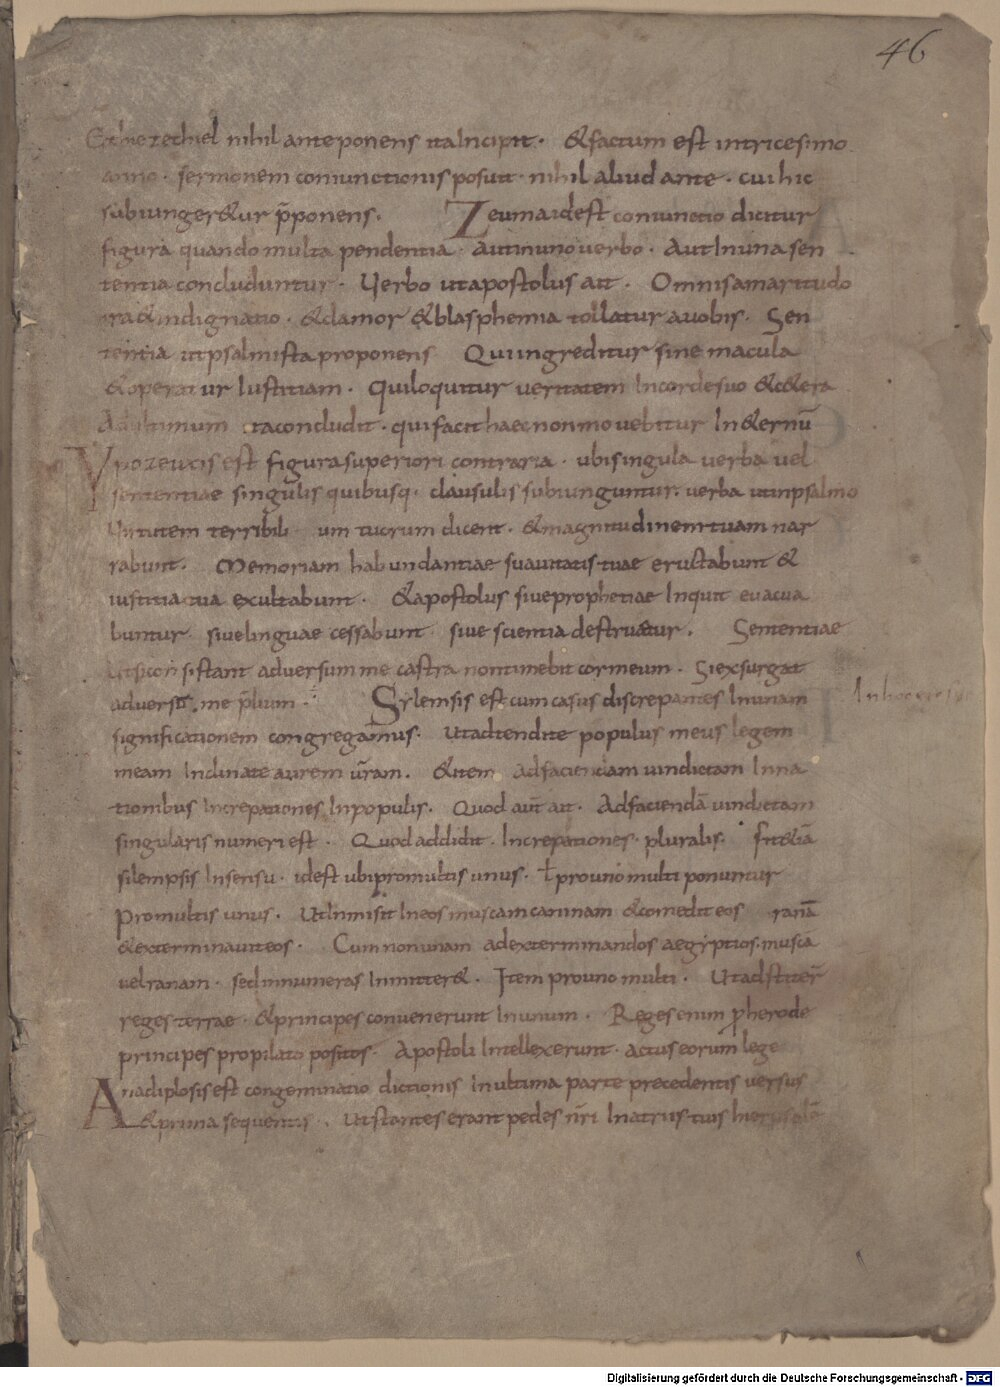 46
Et hiezechiel nihil anteponens ita Incipit · & factum est in tricesimo
anno · sermonem coniunctionis posuit · nihil aliud ante · cui hic
subiunger&ur p̄ponens · Zeuma idest coniunctio dicitur
figura quando multa pendentia · aut in uno verbo · Aut In una sen
tentia concluduntur · Verbo ut apostolus ait · Omnis amaritudo
ira & indignatio · & clamor & blasphemia tollatur a vobis · Sen
tentia ut psalmista proponens Qui ingreditur sine macula
& operatur Iustitiam · Qui loquitur veritatem In corde suo & c&era
Ad ultimum ita concludit · qui facit haec non movebitur In &ernū
Ypozeucis est figura superiori contraria · ubi singula verba vel
sententiae singulis quibusq· clausulis subiunguntur · verba ut in psalmo
Virtutem terribili um tuorum dicent · & magnitudinem tuam nar
rabunt · Memoriam habundantiae suavitatis tuae eructabunt &
iustitia tua exultabunt · & apostolus sive prophetiae Inquit evacua
buntur sive linguae cessabunt sive scientia destruetur · Sententiae
Ut si consistant adversum me castra non timebit cor meum · Si exsurgat
adversū me p̄lium · Sylemsis est cum casus discrepantes In unam
significationem congregamus · Ut adtendite populus meus legem
meam Inclinate aurem ur̄am · & item Ad faciendam vindictam In na
tionibus Increpationes In populis · Quod aut̄ ait · Ad faciendā vindictam
singularis numeri est · Quod addidit · Increpationes · pluralis · Fit &iā
silempsis In sensu · idest ubi pro multis unus · ł pro uno multi ponuntur
Pro multis unus · Ut Inmisit In eos muscam caninam & comedit eos ranā
& exterminavit eos · Cum non unam ad exterminandos aegyptios · muscā
vel ranam · sed innumeras Inmitter& · Item pro uno multi · Ut adstiter̄
reges terrae · & principes convenerunt In unum · Reges enim p̄ herode
principes pro pilato positos · Apostoli Intellexerunt · actus eorum lege
Anadiplosis est congeminatio dictionis In ultima parte precedentis versus
& prima sequentis · Ut stantes erant pedes nr̄i In atriis tuis hierusalē
Digitalisierung gefördert durch die Deutsche Forschungsgemeinschaft - DFG